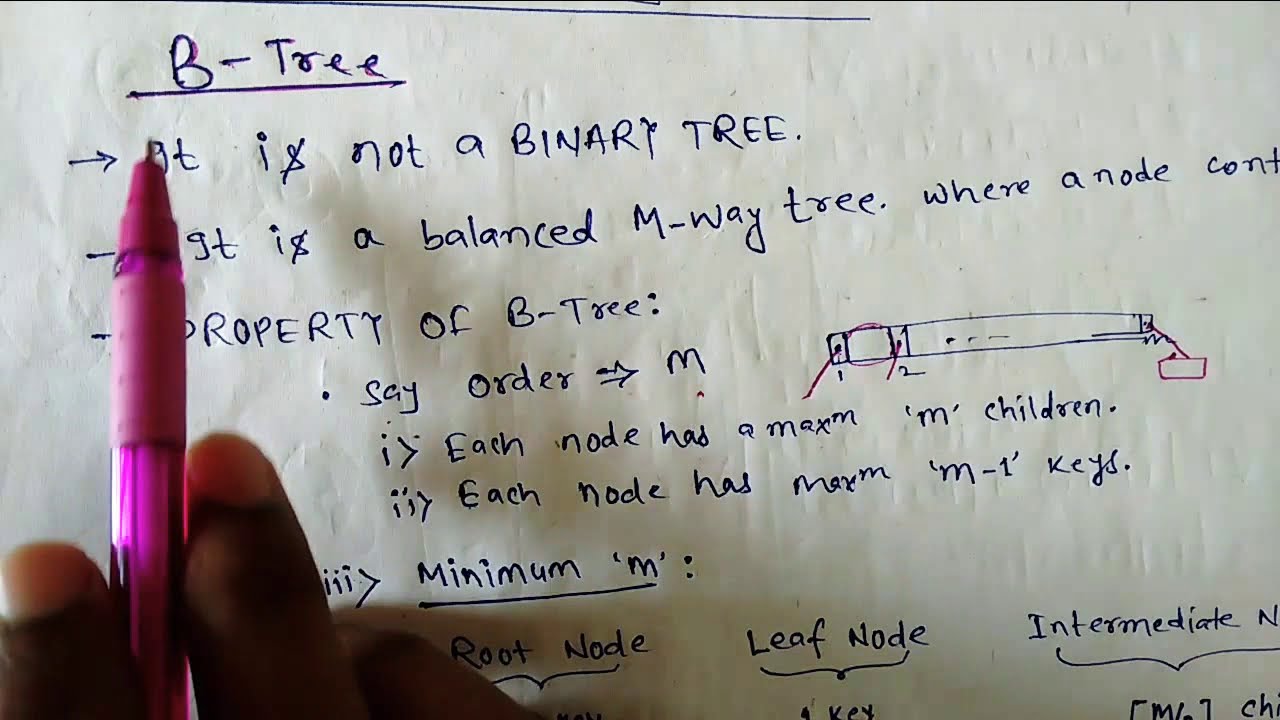 B-Tree
→ It is not a BINARY TREE.
- It is a balanced M-way tree. where a node cont
- PROPERTY OF B-Tree:
• say order ⇒ m
1 2 ... m
i> Each node has a maxm 'm' children.
ii> Each node has maxm 'm-1' keys.
iii> Minimum 'm':
Root Node Leaf Node Intermediate N
key 1 key [m/2] chi